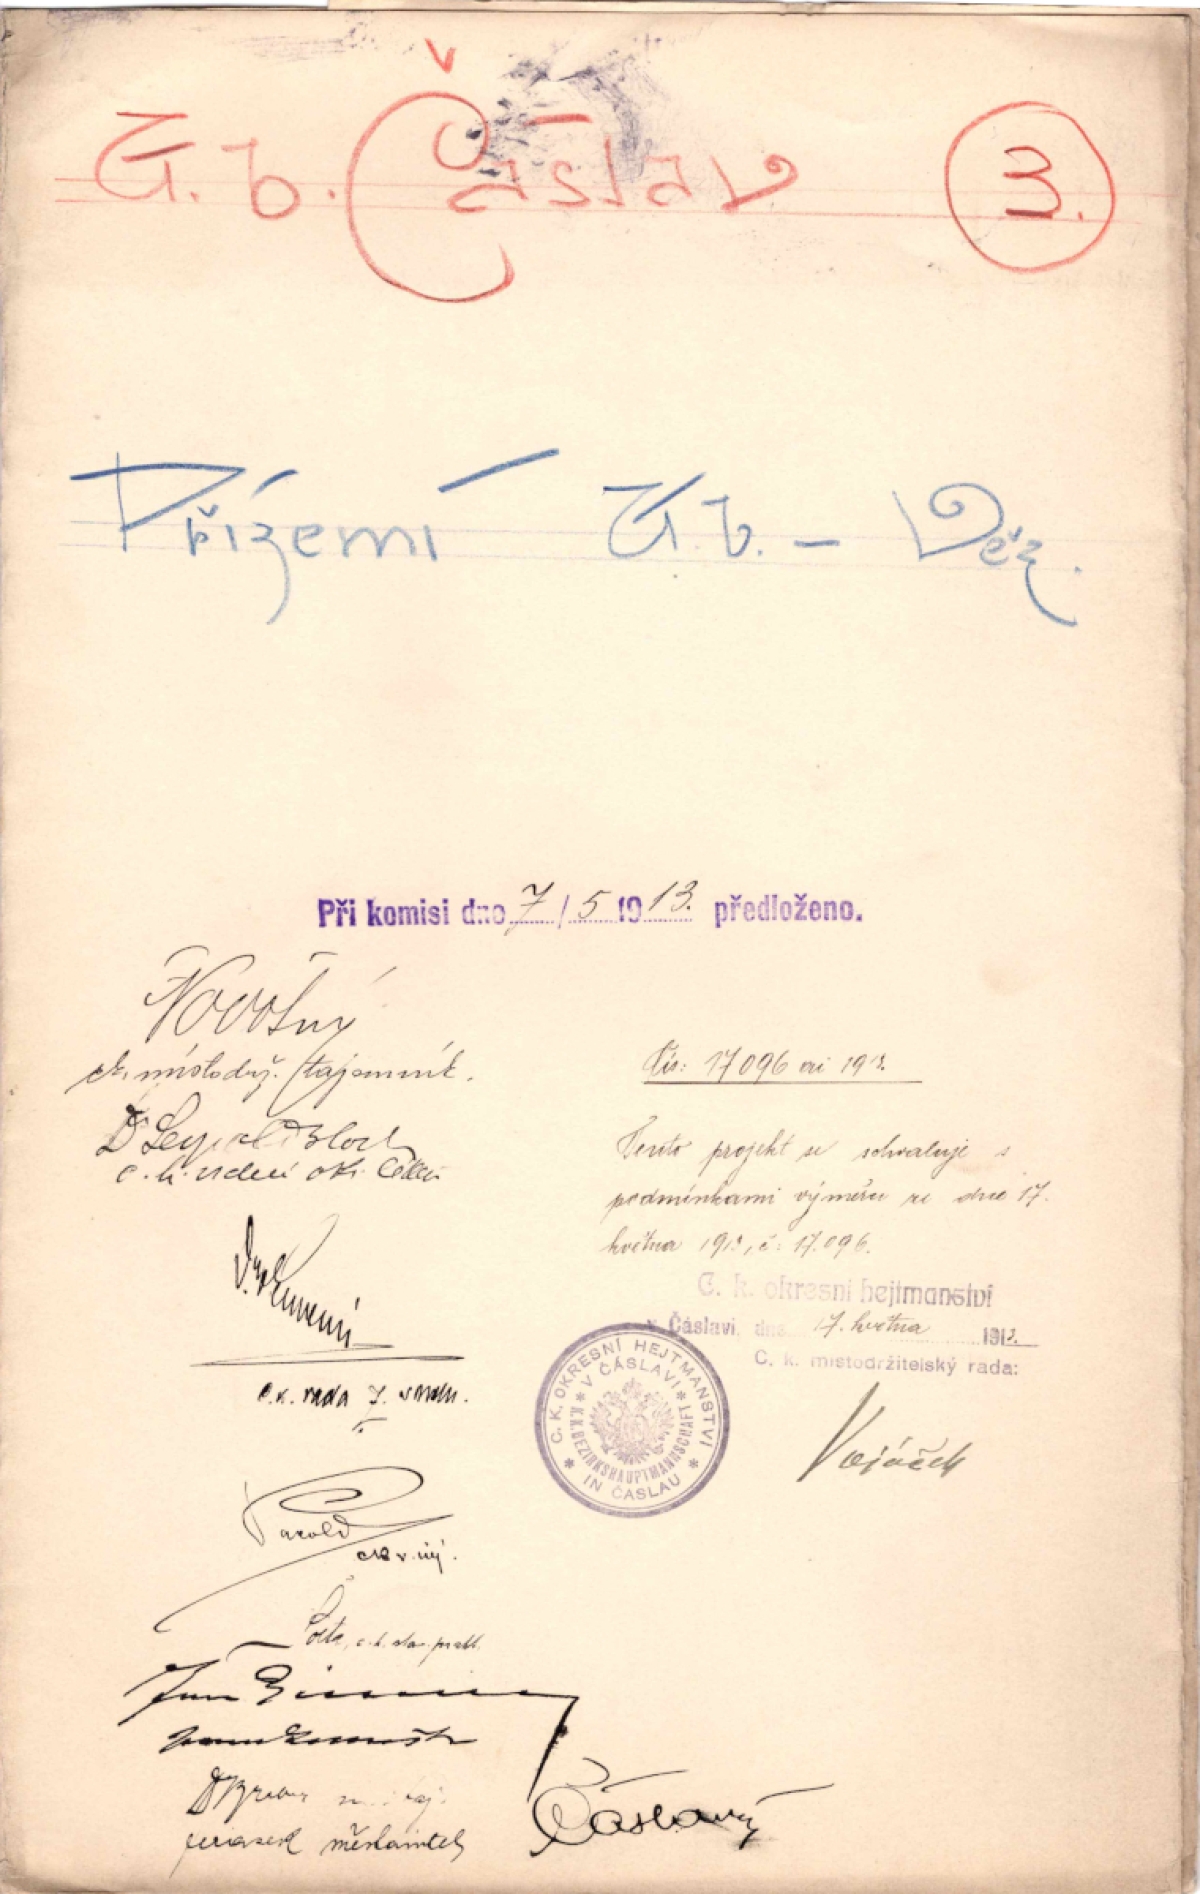 Ú. b. Čáslav 3.
Přízemí Ú. b. – Věz.
Při komisi dne 7/5 1913. předloženo.
Novotný
ck. místodrž. tajemník.
Dr Leopold Bloch
c. k.
c. k. rada z. s.
Čís: 17096 ai 1913.
Tento projekt se schvaluje s
podmínkami výměru ze dne 17.
května 1913, č: 17.096.
C. k. okresní hejtmanství
v Čáslavi, dne 17. května 1913.
C. k. místodržitelský rada:
Vojáček
C. K. OKRESNÍ HEJTMANSTVÍ
* V ČÁSLAVI *
K.K. BEZIRKSHAUPTMANNSCHAFT
* IN ČASLAU *
Jan
Čáslavský